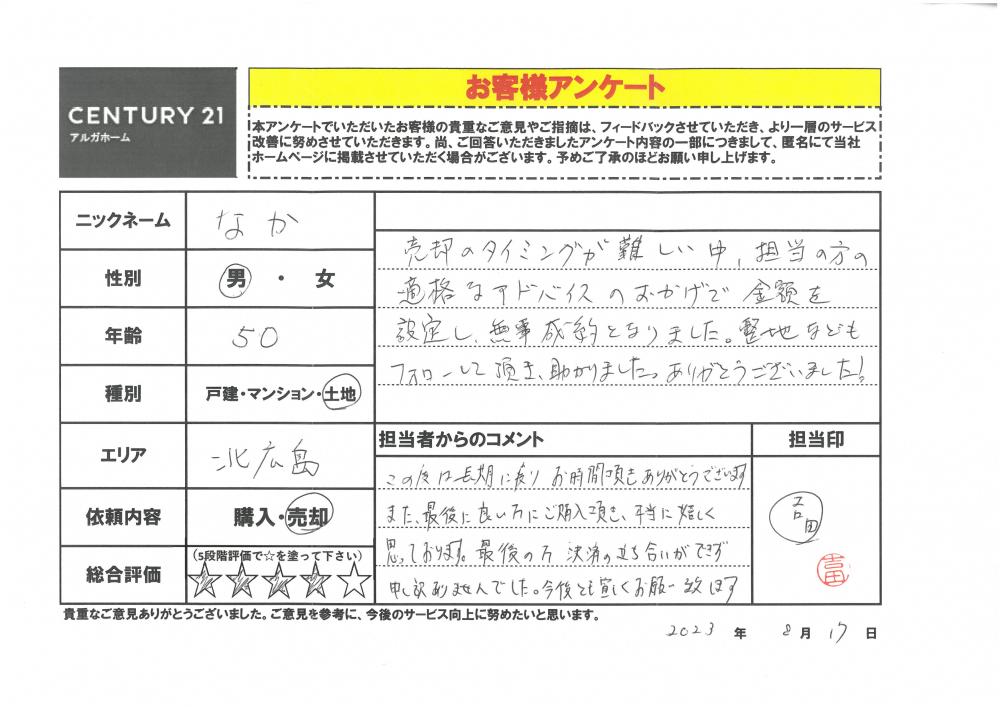 CENTURY 21
アルガホーム
お客様アンケート
本アンケートでいただいたお客様の貴重なご意見やご指摘は、フィードバックさせていただき、より一層のサービス
改善に努めさせていただきます。尚、ご回答いただきましたアンケート内容の一部につきまして、匿名にて当社
ホームページに掲載させていただく場合がございます。予めご了承のほどお願い申し上げます。
ニックネーム
なか
性別
男・女
年齢
50
種別
戸建・マンション・土地
エリア
北広島
依頼内容
購入・売却
総合評価
(5段階評価で☆を塗って下さい)
売却のタイミングが難しい中、担当の方の
適格なアドバイスのおかげで金額を
設定し、無事成約となりました。整地なども
フォローして頂き、助かりました。ありがとうございました!
担当者からのコメント
この度は長期に渡りお時間頂きありがとうございます
また、最後に良い方にご購入頂き、本当に嬉しく
思っております。最後の方決済の立ち合いができず
申し訳ありませんでした。今後とも宜しくお願い致します
担当印
吉田
貴重なご意見ありがとうございました。ご意見を参考に、今後のサービス向上に努めたいと思います。
2023 年 8 月 17 日